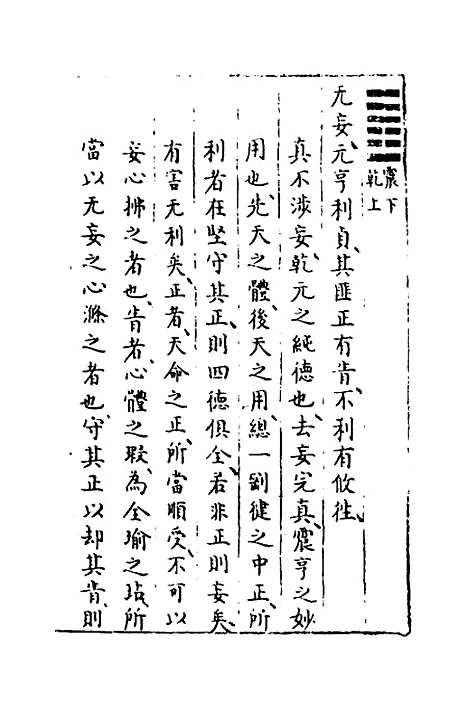 震下
乾上
无妄、元亨利貞、其匪正有眚、不利有攸往、
真不涉妄、乾元之純德也、去妄完真、震亨之妙
用也、先天之體、後天之用、總一剛健之中正、所
利者在堅守其正、則四德俱全、若非正則妄矣、
有害无利矣、正者、天命之正、所當順受、不可以
妄心拂之者也、眚者、心體之瑕、為全瑜之玷、所
當以无妄之心滌之者也、守其正以却其眚、則